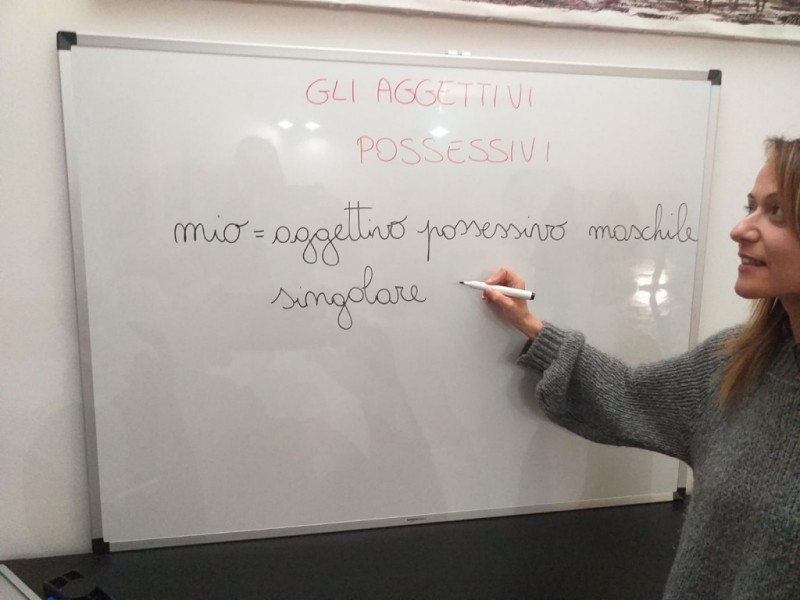 GLI AGGETTIVI
POSSESSIVI
mio = aggettivo possessivo maschile
singolare